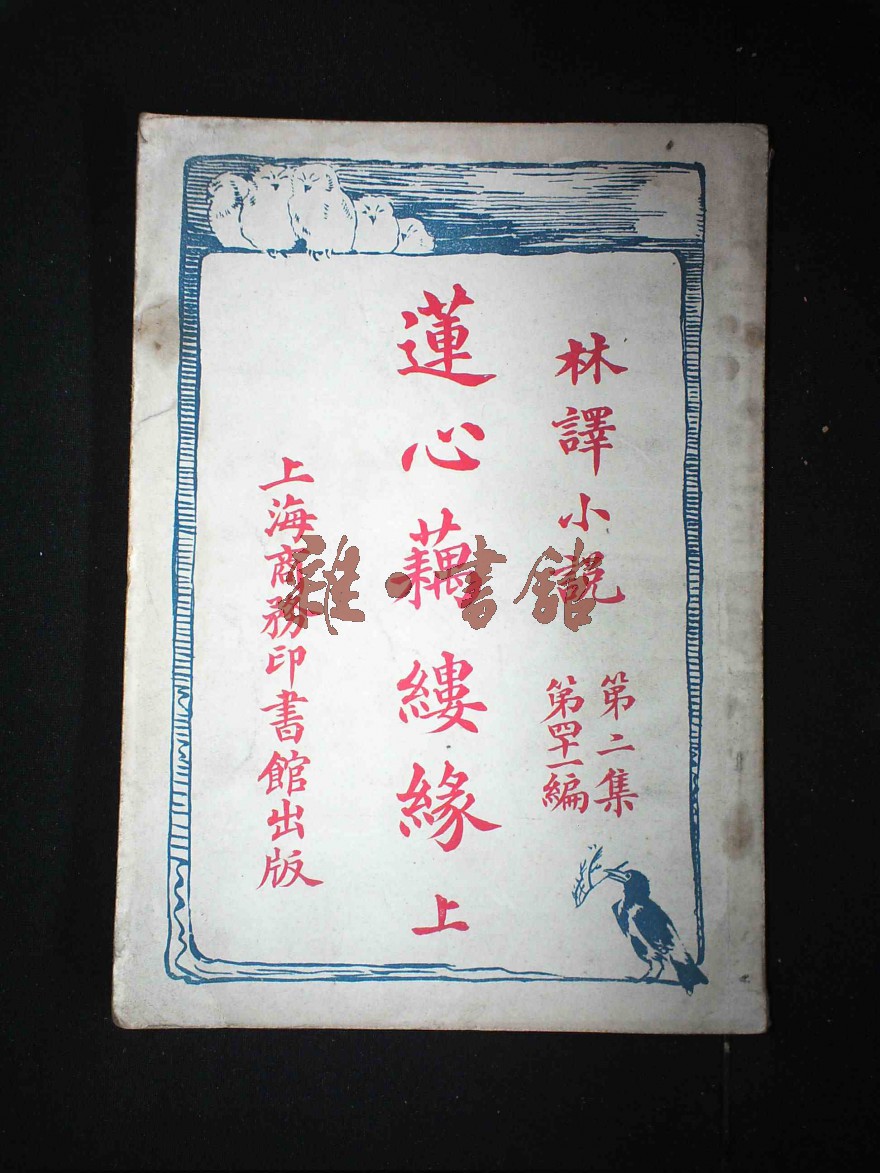 林譯小說
第二集
第四十一編
蓮心藕縷緣 上
上海商務印書館出版
雜·書館